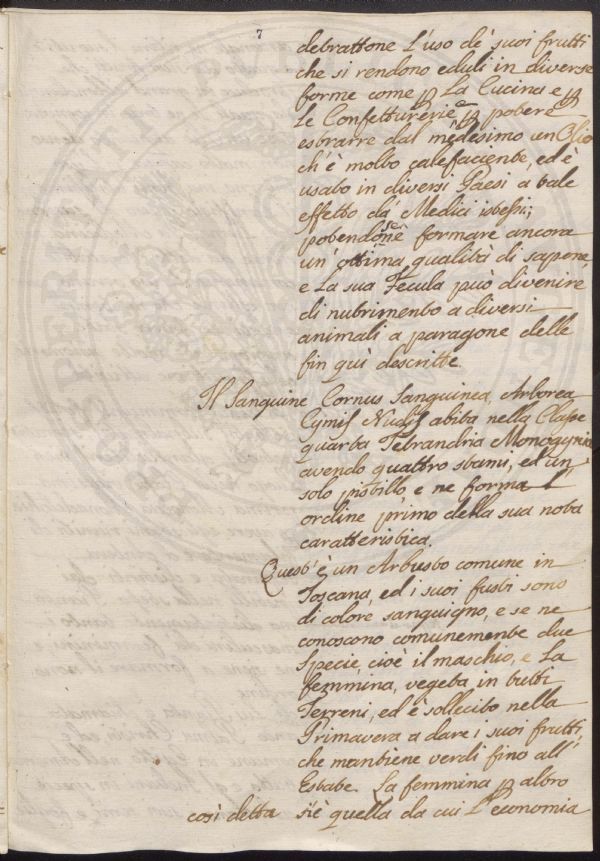 7
debrattone L'uso de' suoi frutti
che si rendono eduli in diverse
forme come p La Cucina e p
Le Confetturerie p potere
estrarre dal medesimo un Olio
ch' è molto calefaciente, ed è
usato in diversi Paesi a tale
effetto da Medici istessi;
potendosene formare ancora
un' ottima qualità di sapone,
e La sua Fecula può divenire
di nutrimento a diversi
animali a paragone delle
fin quì descritte.
Il Sanguine Cornus Sanguinea, Arborea
Cymis Nudis abita nella Classe
quarta Tetrandria Monogynia
avendo quattro stami, ed un
solo pistillo, e ne forma L'
ordine primo della sua nota
caratteristica.
Quest' è un Arbusto comune in
Toscana, ed i suoi fusti sono
di colore sanguigno, e se ne
conoscono comunemente due
specie, cioè il maschio, e La
femmina, vegeta in tutti
Terreni, ed è sollecito nella
Primavera a dare i suoi frutti,
che mantiene verdi fino all'
Estate. La femmina p altro
così detta si è quella da cui L' economia